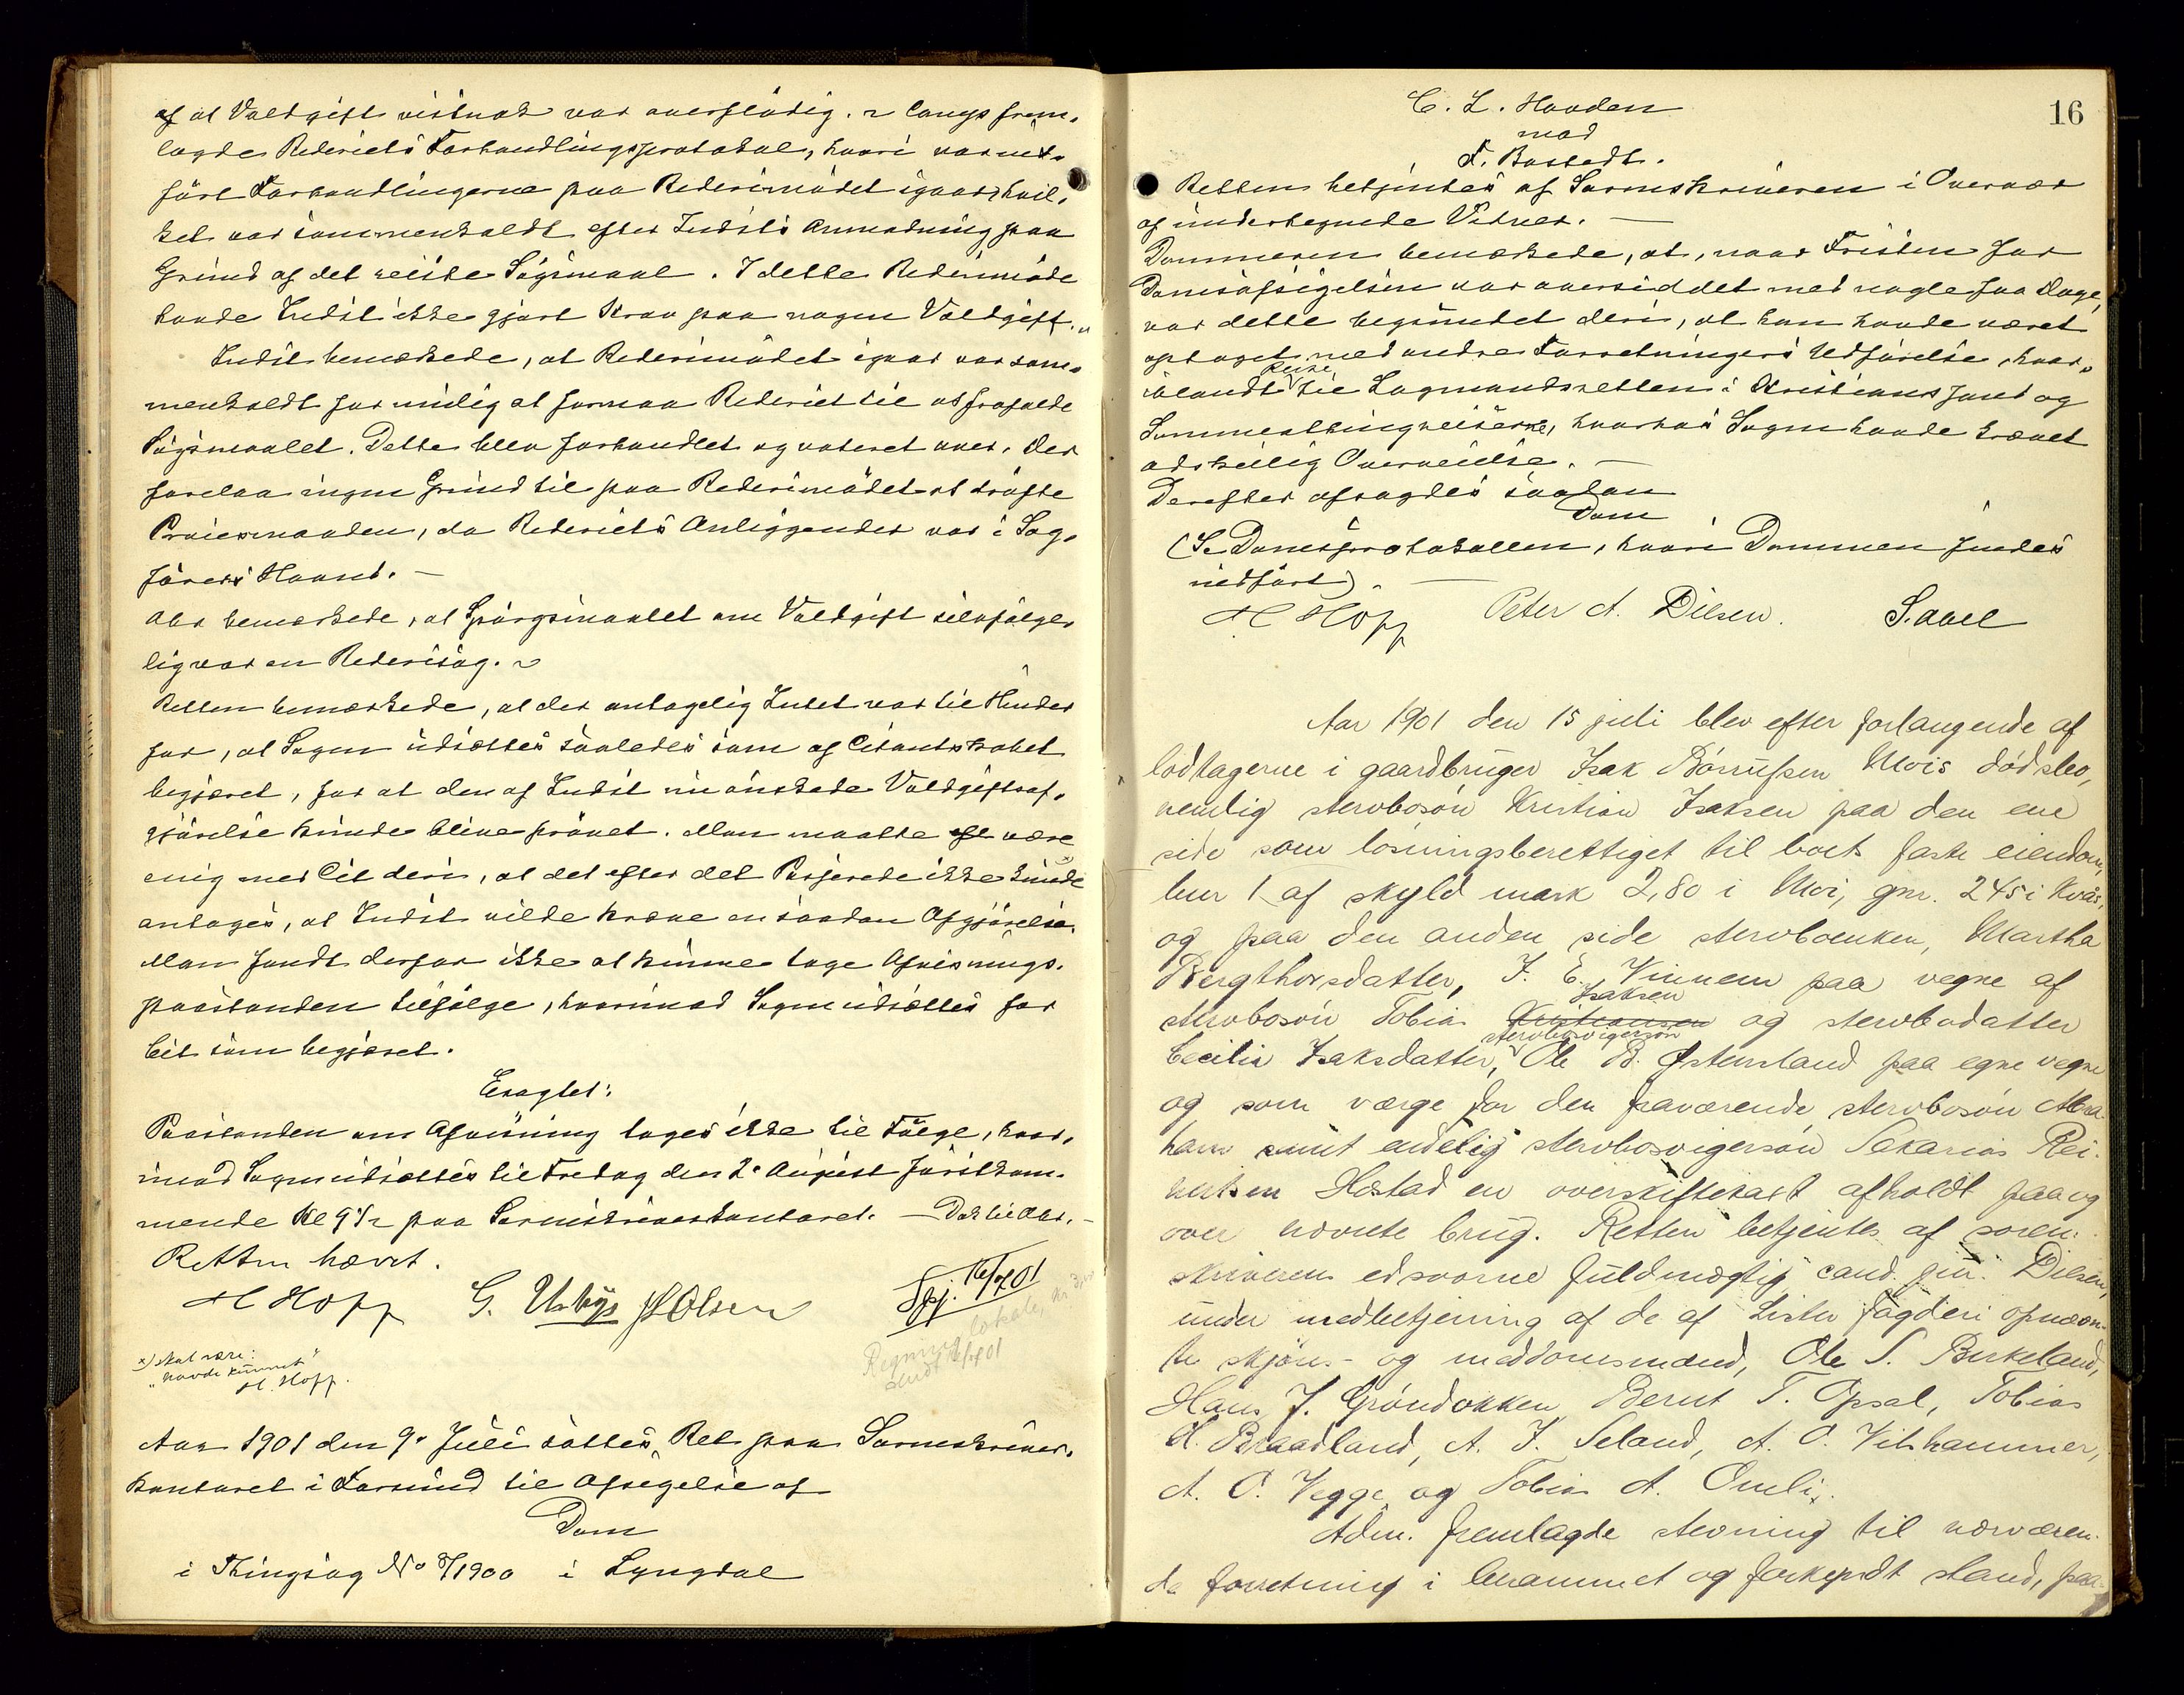 af at Voldgift vistnok var overflødig. ~ Langs frem-
lagde Rederiets Forhandlingsprotokol, hvori var ind-
ført Forhandlingerne paa Rederimødet igaar, hvil-
ket var sammenkaldt efter Indst's Anmodning paa
Grund af det reiste Søgsmaal. I dette Rederimøde
havde Indst ikke gjort Krav paa nogen Voldgift. ~
Indst bemærkede, at Rederimødet igaar var sam-
menkaldt for mulig at formaa Rederiet til at frafalde
Søgsmaalet. Dette blev forhandlet og voteret over. Der
forelaa ingen Grund til paa Rederimødet at drøfte
Præmaanden, da Rederiets Anliggender var i Sag-
førers Haand. —
Abr bemærkede, at Spørgsmaalet om Voldgift selvfølge-
lig var en Rederisag. ~
Retten bemærkede, at der antagelig Intet var til Hinder
for, at Sagen udsættes saaledes som af Citantskabet
begjæret, for at den af Indst nu ønskede Voldgiftsaf-
gjørelse kunde blive prøvet. Man maatte være
enig med Cit deri, at det efter det Passerede ikke kunde
antages, at Indst vilde kræve en saadan Afgjørelse.
Man fandt derfor ikke at kunne tage Afvisnings-
paastanden tilfølge, hvorimod Sagen udsættes for
Cit som begjæret.
Eragtet:
Paastanden om Afvisning tages ikke til Følge, hvor-
imod Sagen udsættes til Fredag den 2. August førstkom-
mende Kl 9½ paa Sorenskriverkontoret. —
Retten hævet.
H Hopp G. Usbye J Olsen
x) skal være:
"havde kunnet"
H. Hopp.
Aar 1901 den 9. Juli sattes Ret paa Sorenskriver-
kontoret i Farsund til Afsigelse af
Dom
i Thingsag No 8/1900 i Lyngdal
16
C. L. Haaden
mod
F. Bastedt.
Retten betjentes af Sorenskriveren i Overvær
af undertegnede Vidner. —
Dommeren bemærkede, at, naar Fristen for
Domsafsigelsen var oversiddet med nogle faa Dage,
var dette begrundet deri, at han havde været
optaget med andre Forretningers Udførelse, hvor-
Reise
iblandt til Lagmandsretten i Kristianssand og
Sommerthingreiserne, hvorhos Sagen havde krævet
adskillig Overveielse. —
Derefter afsagdes saadan
Dom
(Se Domsprotokollen, hvori Dommen findes
indført). —
H Hopp Peter A. Dilsen. S. Aael
Aar 1901 den 15 juli blev efter forlangende af
lodtagerne i gaardbruger Isak Børrufsen Mois dødsbo,
nemlig stervbosøn Kristian Isaksen paa den ene
side som løsningsberettiget til boets faste eiendom,
bnr 1 af skyld mark 2,80 i Moi, gnr. 245 i Kvås,
og paa den anden side stervboenken, Martha
Bergthorsdatter, J. E. Vinnem paa vegne af
Isaksen
stervbosøn Tobias Kristiansen og stervbodatter
stervbosvigersøn
Cecilia Isaksdatter, Ole B. Østensland paa egne vegne
og som værge for den fraværende stervbosøn Abra-
ham samt endelig stervbosvigersøn Sakarias Rei-
nertsen Høstad en overskiftekast afholdt paa og
over nævnte brug. Retten betjentes af soren-
skriverens edsvorne fuldmægtig, cand. jur. Dilsen,
under medbetjening af de af Lister fogderi opnævn-
te skjøns- og meddomsmænd, Ole S. Birkeland,
Hans J. Grøndokken Bernt T. Opsal, Tobias
H. Braadland, A. J. Seland, A. O. Vithammer,
A. O. Vegge og Tobias A. Omli.
Adm. fremlagde stevning til nærværen-
de forretning i berammet og forkyndt stand, paa-